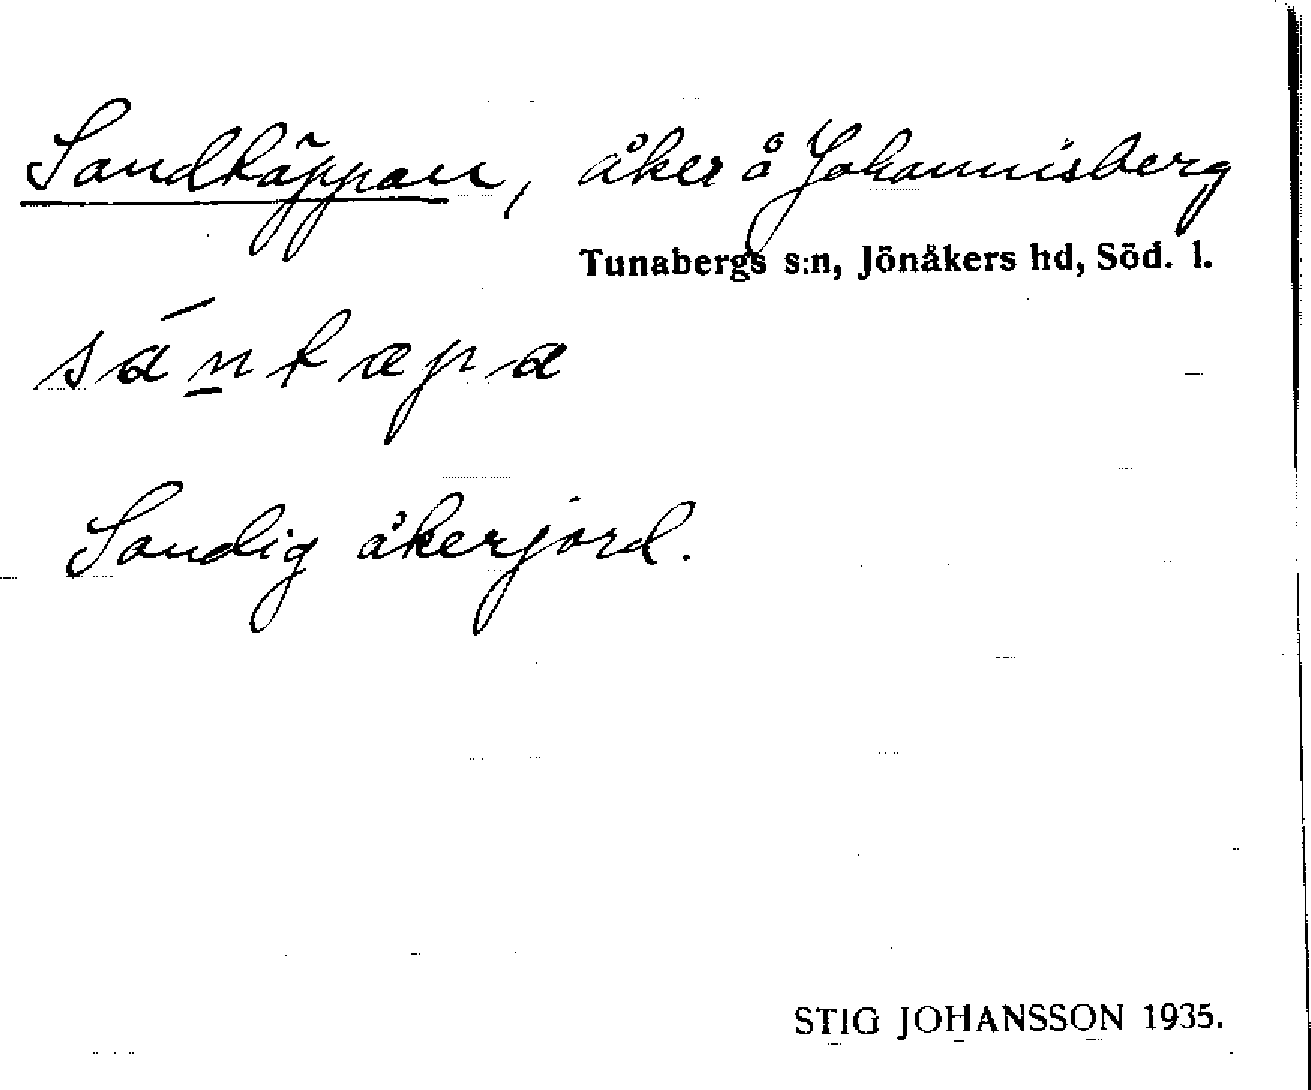 Sandkäppan, åker å Johannisberg
Tunabergs s:n, Jönåkers hd, Söd. l.
sánkæpa
Sandig åkerjord.
STIG JOHANSSON 1935.